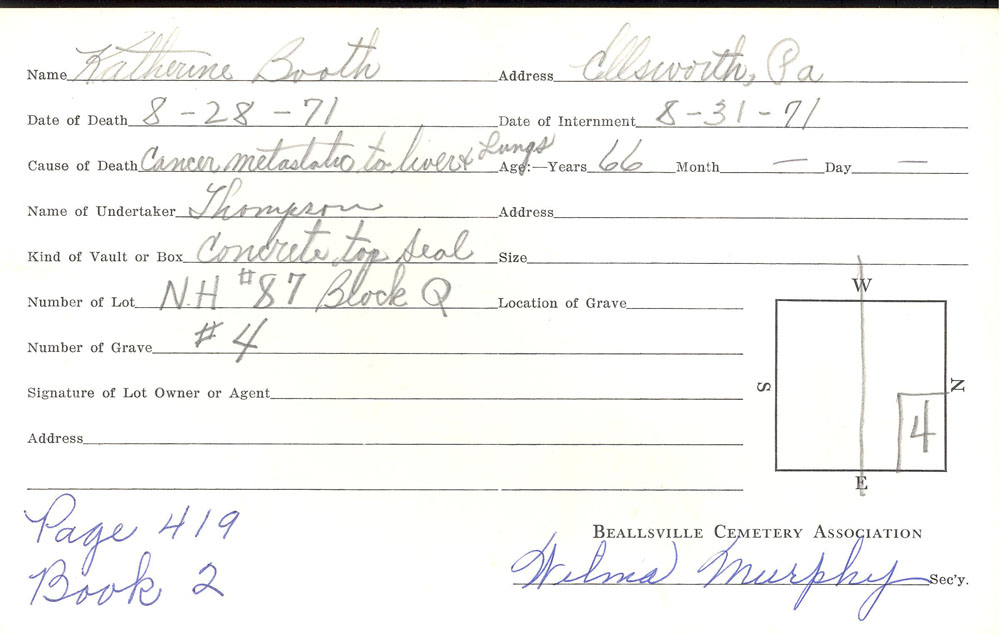 Name Katherine Booth Address Ellsworth, Pa
Date of Death 8-28-71 Date of Internment 8-31-71
Cause of Death Cancer metastatic to liver & Lungs Age:—Years 66 Month — Day —
Name of Undertaker Thompson Address
Kind of Vault or Box Concrete top Seal Size
Number of Lot N.H #87 Block Q Location of Grave
Number of Grave #4
Signature of Lot Owner or Agent
Address
W
S
N
4
E
Page 419
Book 2
BEALLSVILLE CEMETERY ASSOCIATION
Wilma Murphy Sec'y.